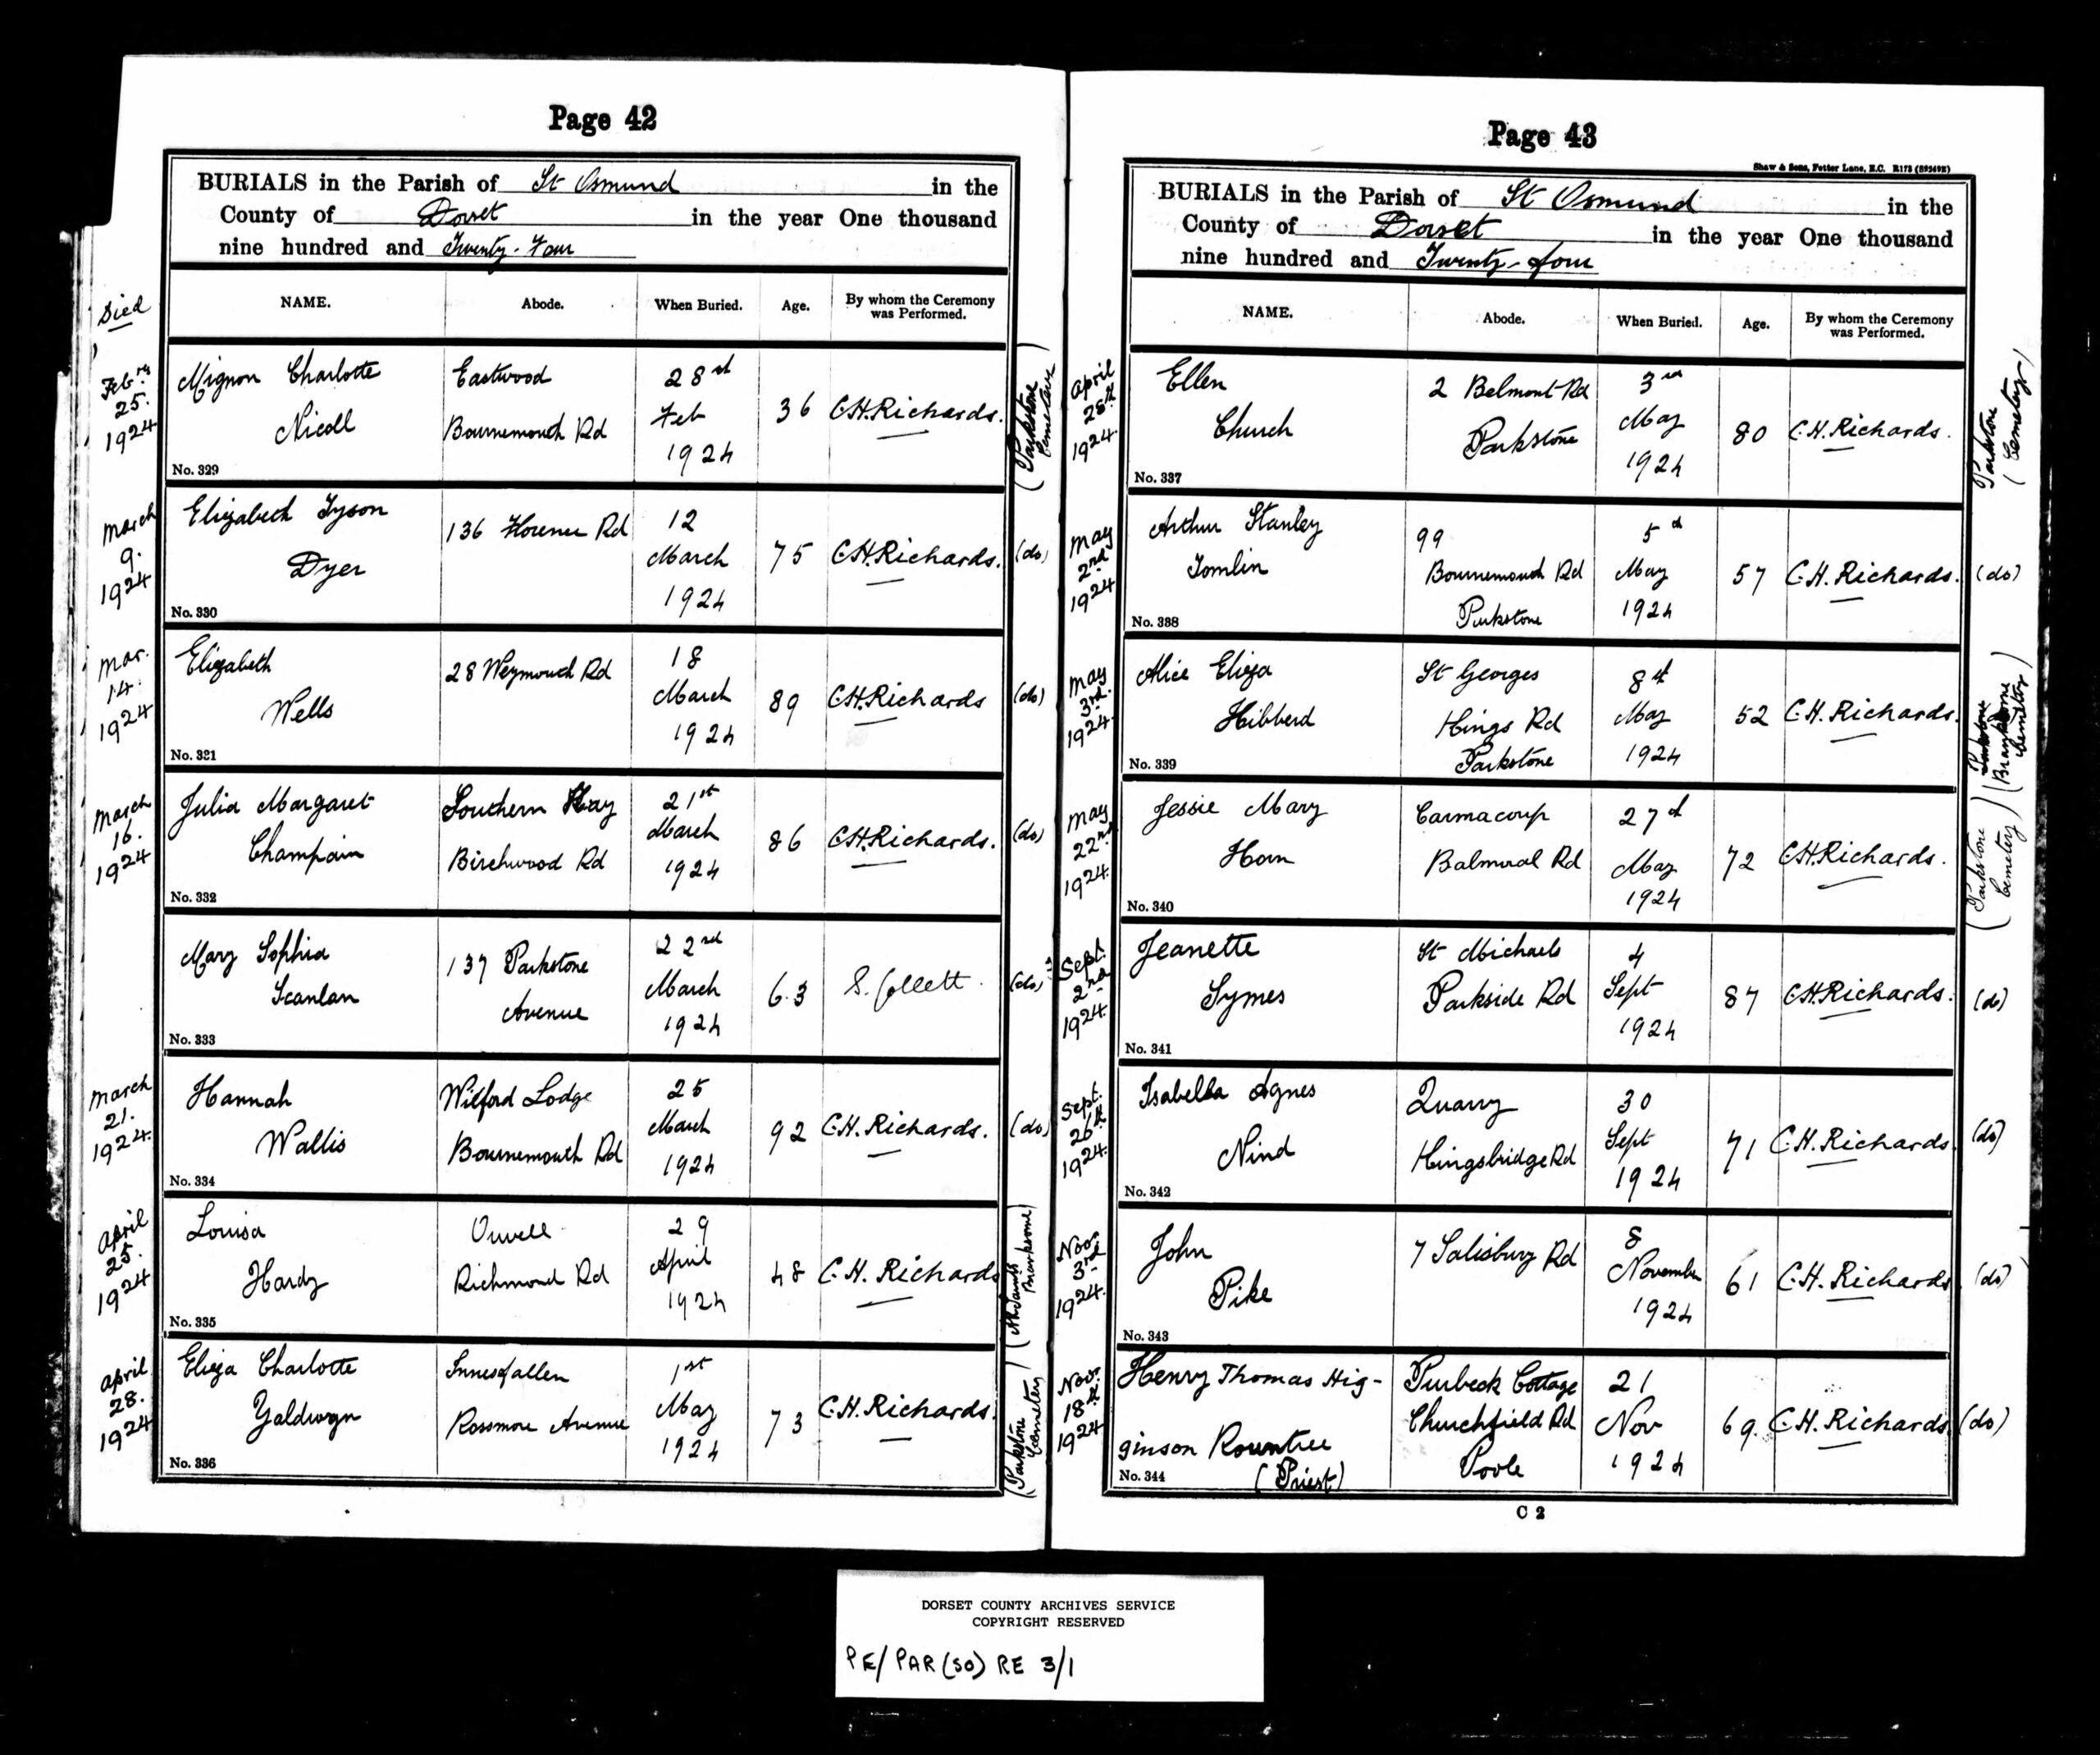 Page 42
BURIALS in the Parish of St Osmund in the
County of Dorset in the year One thousand
nine hundred and Twenty-Four
Died
NAME. Abode. When Buried. Age. By whom the Ceremony was Performed.
Feb.ry 25. 1924
Mignon Charlotte Nicoll
Eastwood Bournemouth Rd
28st Feb 1924
36
C.H. Richards.
(Parkstone Cemetery)
No. 329
March 9. 1924
Elizabeth Tyson Dyer
136 Florence Rd
12 March 1924
75
C.H. Richards.
(do)
No. 330
Mar. 14. 1924
Elizabeth Wells
28 Weymouth Rd
18 March 1924
89
C.H. Richards
(do)
No. 321
March 16. 1924
Julia Margaret Champain
Southern Hay Birchwood Rd
21st March 1924
86
C.H. Richards.
(do)
No. 332
Mary Sophia Scanlan
137 Parkstone Avenue
22nd March 1924
63
S. Collett.
(do)
No. 333
March 21. 1924.
Hannah Wallis
Wilford Lodge Bournemouth Rd
25 March 1924
92
C.H. Richards.
(do)
No. 334
April 25. 1924
Louisa Hardy
Orwell Richmond Rd
29 April 1924
48
C.H. Richards
Branksome)
No. 335
April 28. 1924
Eliza Charlotte Yaldwyn
Innesfallen Rossmore Avenue
1st May 1924
73
C.H. Richards.
(Parkstone Cemetery)
No. 336
Page 43
Shaw & Sons, Fetter Lane, E.C.
BURIALS in the Parish of St Osmund in the
County of Dorset in the year One thousand
nine hundred and Twenty-four
NAME. Abode. When Buried. Age. By whom the Ceremony was Performed.
April 28th 1924.
Ellen Church
2 Belmont Rd Parkstone
3rd May 1924
80
C.H. Richards.
Parkstone (Cemetery)
No. 337
May 2nd 1924
Arthur Stanley Tomlin
99 Bournemouth Rd Parkstone
5th May 1924
57
C.H. Richards.
(do)
No. 338
May 3rd. 1924.
Alice Eliza Hibberd
St Georges Kings Rd Parkstone
8th May 1924
52
C.H. Richards.
(Branksome Cemetery)
No. 339
May 22nd 1924.
Jessie Mary Horn
Balmoral Rd
27th May 1924
72
C.H. Richards.
(Parkstone Cemetery)
No. 340
Sept. 2nd 1924.
Jeanette Symes
St Michaels Parkside Rd
4 Sept 1924
87
C.H. Richards.
(do)
No. 341
Sept. 26th 1924.
Isabella Agnes Nind
Quarry Kingsbridge Rd
30 Sept 1924
71
C.H. Richards.
(do)
No. 342
Nov. 3rd 1924.
John Pike
7 Salisbury Rd
8 November 1924
61
C.H. Richards.
(do)
No. 343
Nov. 18th 1924
Henry Thomas Hig-
ginson Rountree
(Priest)
Purbeck Cottage Churchfield Rd Poole
21 Nov 1924
69.
C.H. Richards.
(do)
No. 344
C 2
DORSET COUNTY ARCHIVES SERVICE
COPYRIGHT RESERVED
PE/PAR(SO) RE 3/1